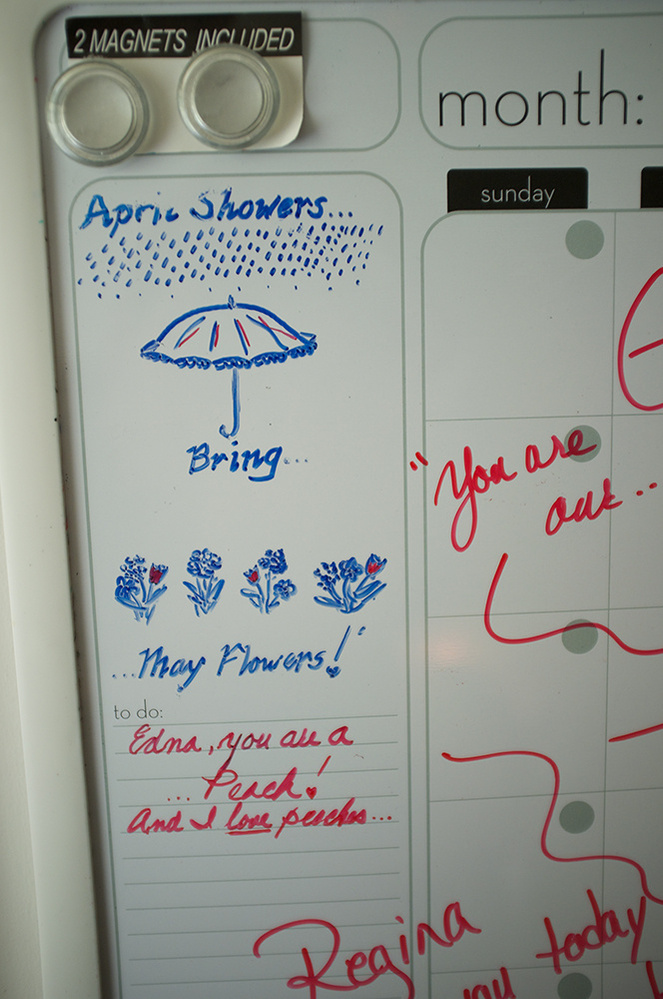 2 MAGNETS INCLUDED
month:
sunday
April Showers...
Bring...
...May Flowers!
to do:
Edna, you are a
... Peach!
And I love peaches...
"You are
our..
Regina
today